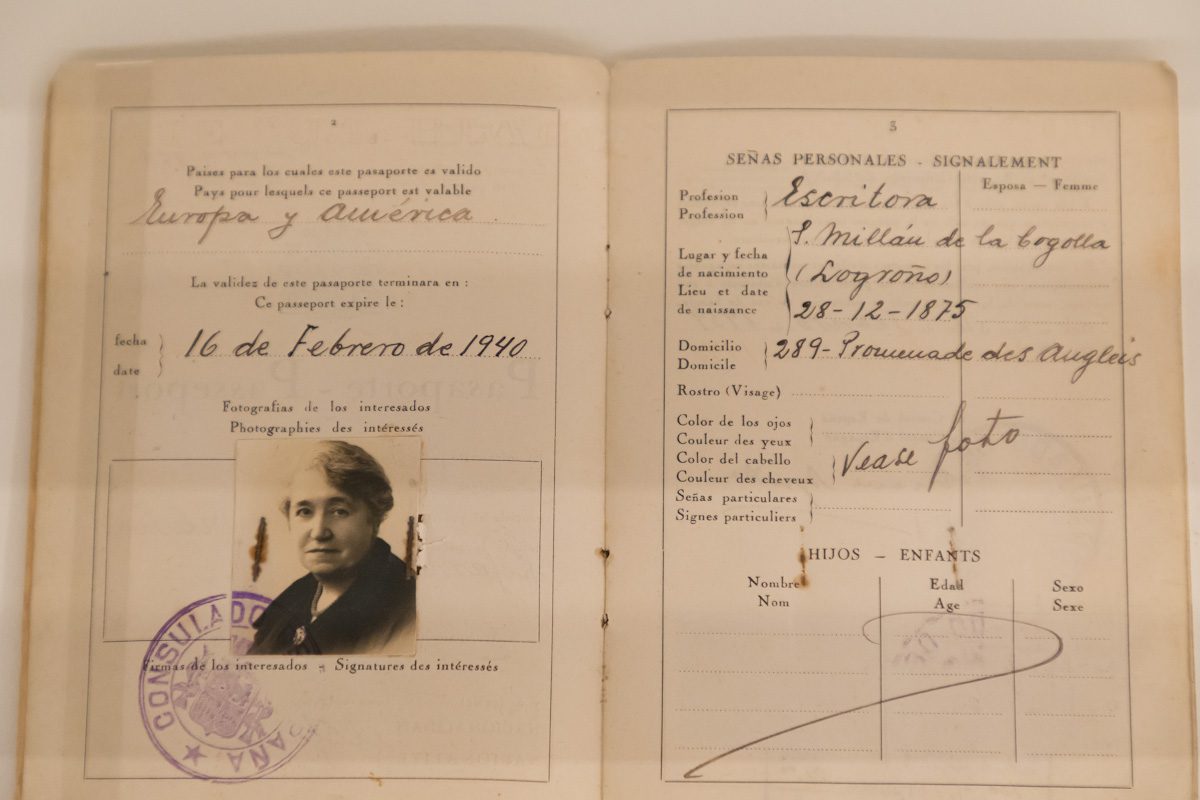 2
Paises para los cuales este pasaporte es valido
Pays pour lesquels ce passeport est valable
Europa y América
La validez de este pasaporte terminara en :
Ce passeport expire le :
fecha
date
16 de Febrero de 1940
Fotografias de los interesados
Photographies des intéressés
Firmas de los interesados - Signatures des intéressés
CONSULADO
AÑA
3
SEÑAS PERSONALES - SIGNALEMENT
Esposa — Femme
Profesion
Profession
Escritora
Lugar y fecha
de nacimiento
Lieu et date
de naissance
S. Millán de la Cogolla
(Logroño)
28-12-1875
Domicilio
Domicile
289- Promenade des Anglais
Rostro (Visage)
Color de los ojos
Couleur des yeux
Color del cabello
Couleur des cheveux
Señas particulares
Signes particuliers
Vease foto
HIJOS — ENFANTS
Nombre
Nom
Edad
Age
Sexo
Sexe